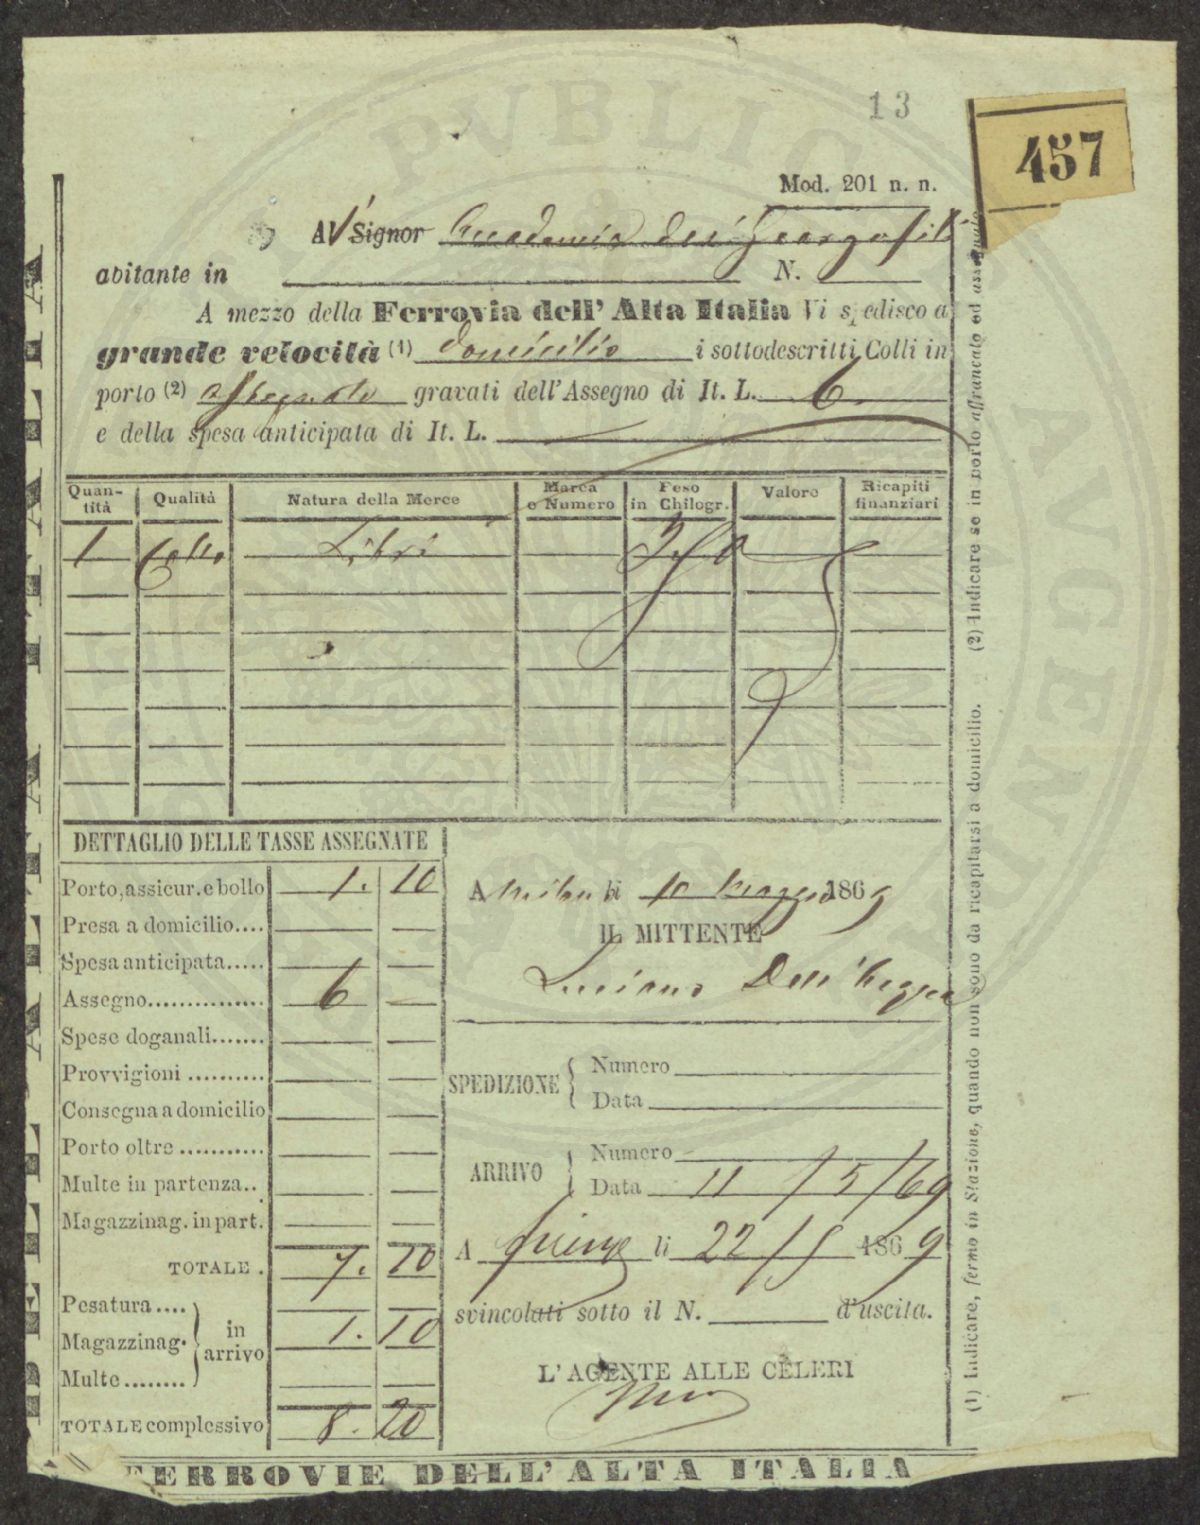 13
457
Mod. 201 n. n.
Al Signor Accademia dei Georgofili
abitante in N.
A mezzo della Ferrovia dell' Alta Italia Vi spedisco a
grande velocità (1) domicilio i sottodescritti Colli in
porto (2) assegnato gravati dell'Assegno di It. L. 6
e della spesa anticipata di It. L.
Quantità Qualità Natura della Merce Marca e Numero Peso in Chilogr. Valore Ricapiti finanziari
1 Collo Libri
DETTAGLIO DELLE TASSE ASSEGNATE
Porto, assicur. e bollo 1. 10
Presa a domicilio....
Spesa anticipata.....
Assegno............... 6 —
Spese doganali.......
Provvigioni ..........
Consegna a domicilio
Porto oltre ...........
Multe in partenza..
Magazzinag. in part.
TOTALE . 7. 10
Pesatura....
Magazzinag. in arrivo 1. 10
Multe........
TOTALE complessivo 8. 20
A Milano li 10 Maggio 1869
IL MITTENTE
Luciano
SPEDIZIONE Numero
Data
ARRIVO Numero
Data 11/5/69
A Firenze li 22/5 1869
svincolati sotto il N. d'uscita.
L'AGENTE ALLE CELERI
FERROVIE DELL'ALTA ITALIA
(1) Indicare, fermo in Stazione, quando non sono da ricapitarsi a domicilio. (2) Indicare se in porto affrancato od assegnato
DELL'ALTA ITALIA
PVBLICAE
AVGENDAE